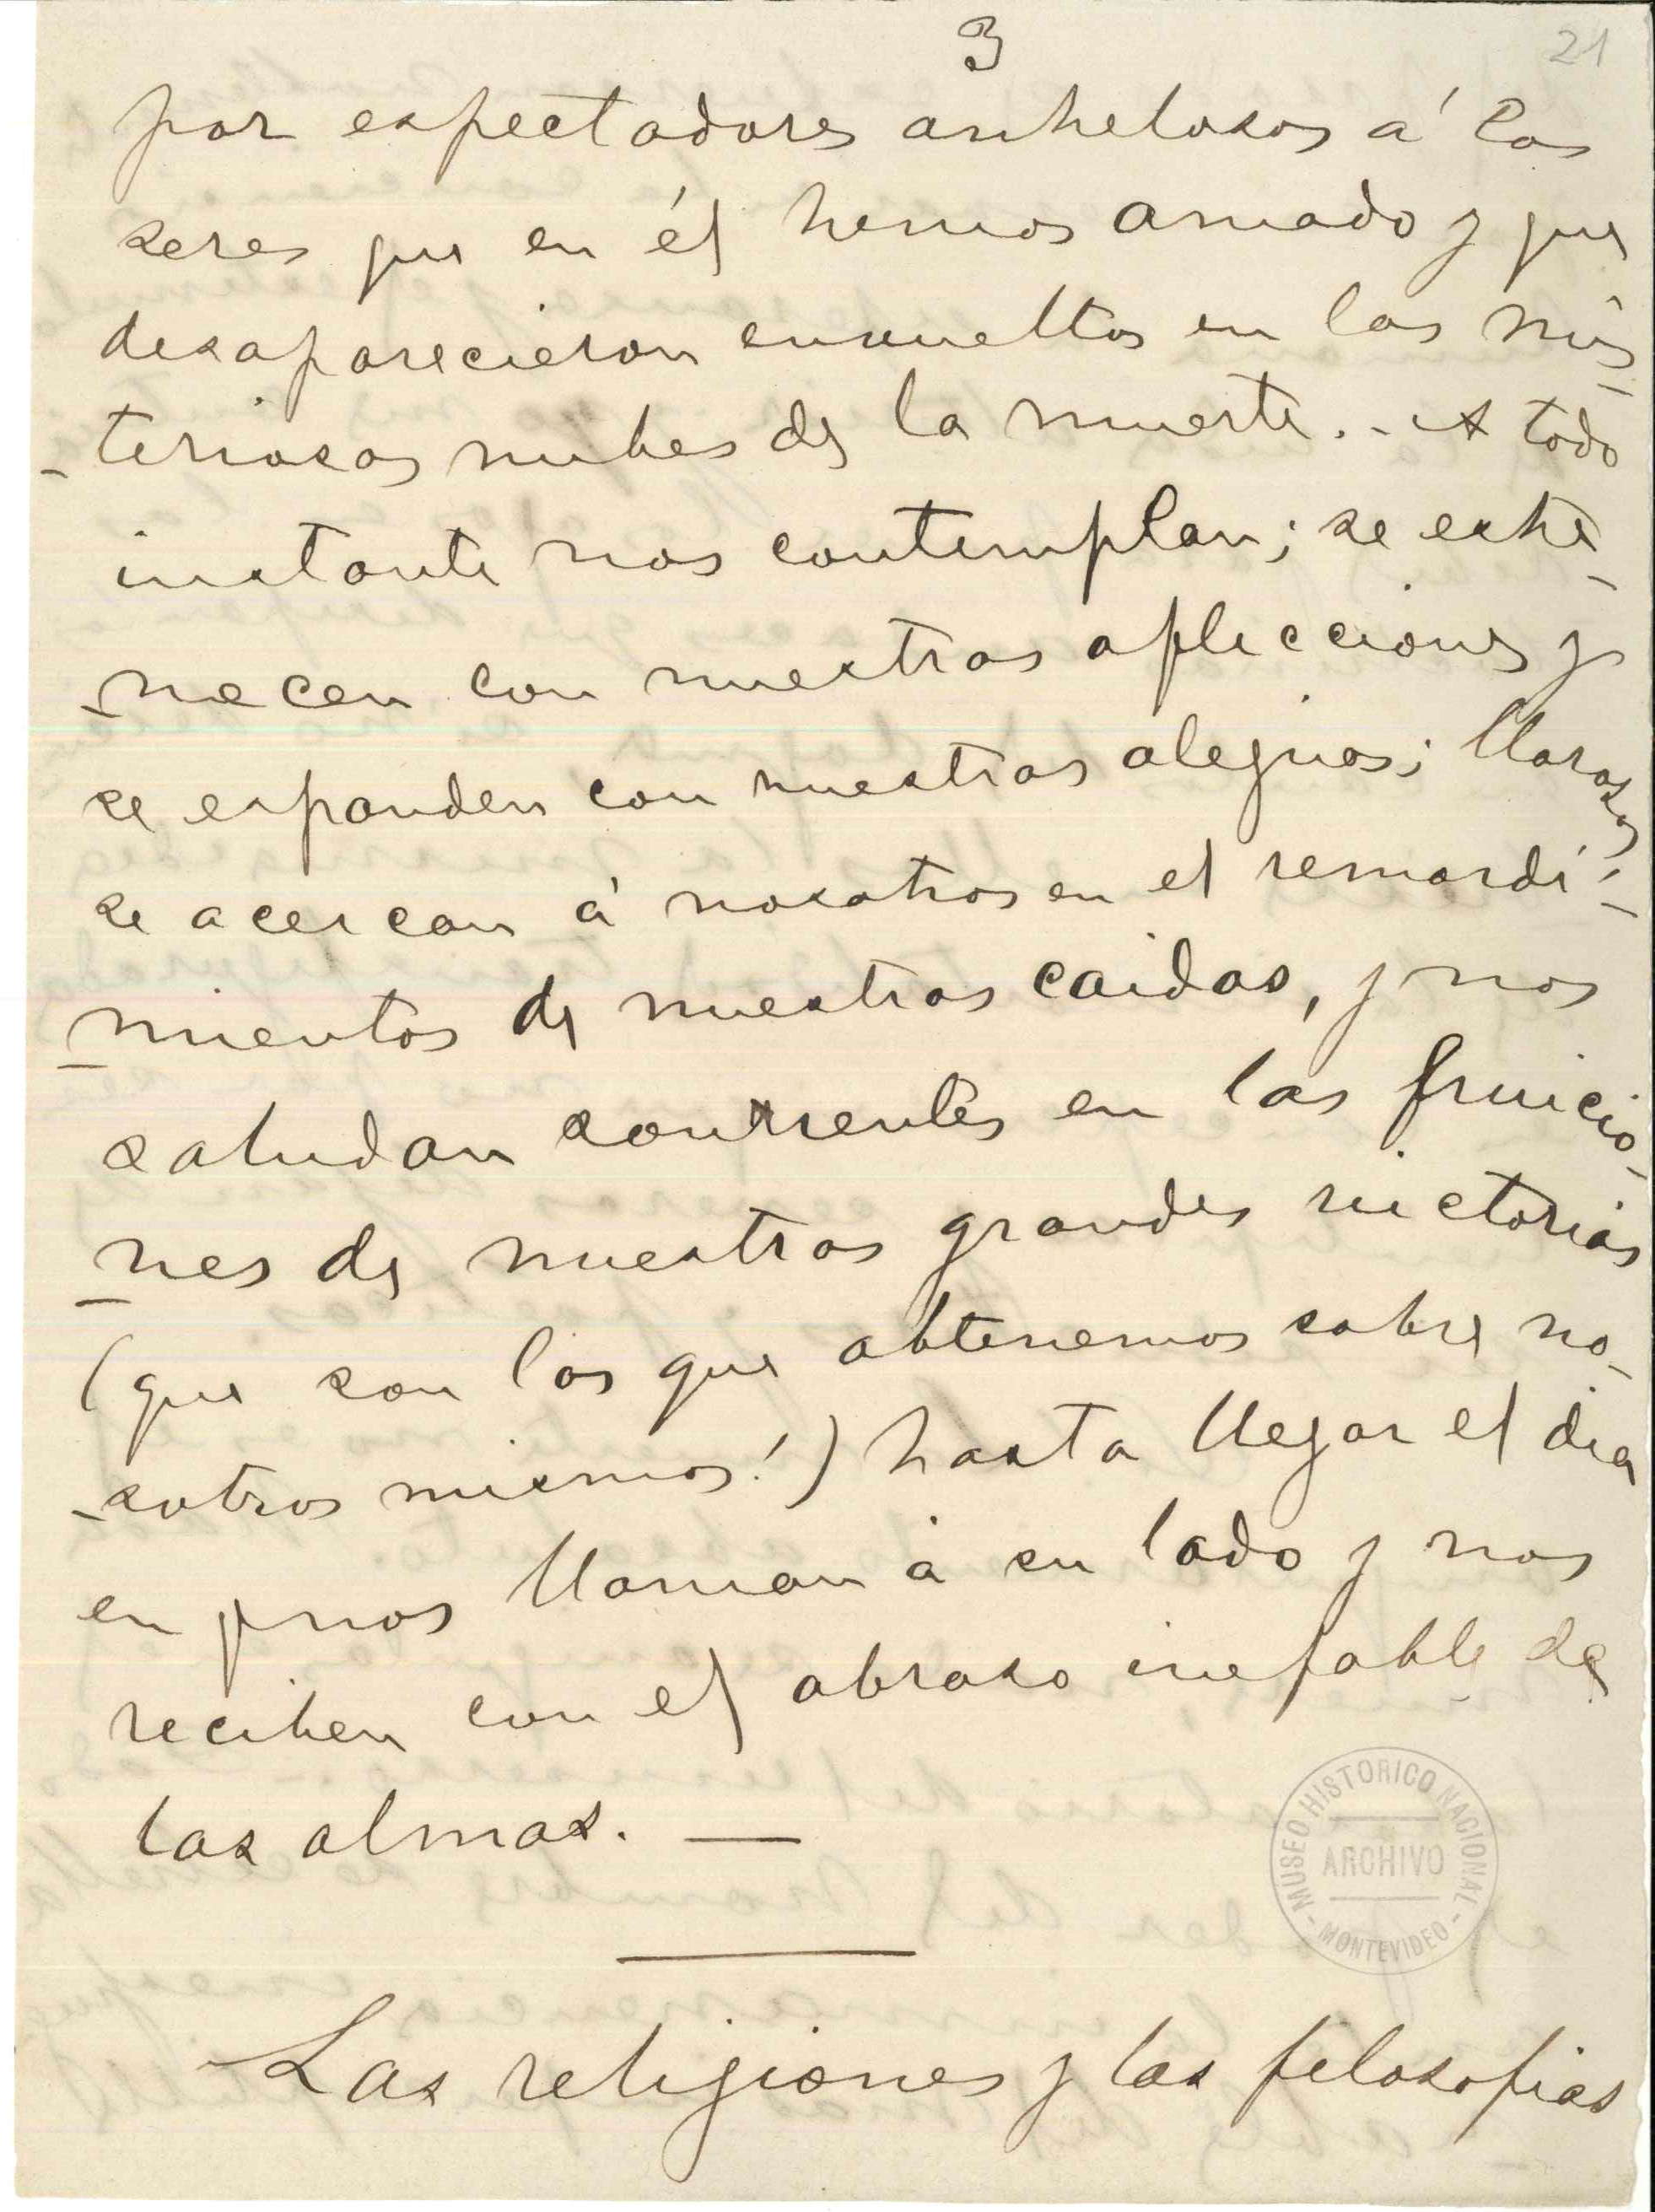 3
21
por espectadores anhelosos á los
seres que en él hemos amado y que
desaparecieron envueltos en las mis-
-teriosas nubes de la muerte. - A todo
instante nos contemplan; se estre-
-mecen con nuestras aflicciones y
se expanden con nuestras alegrias; llorosos
se acercan á nosotros en el remordi-
-mientos de nuestras caidas, y nos
saludan sonrientes en las fruicio-
-nes de nuestras grandes victorias
(que son las que obtenemos sobre no-
-sotros mismos!) hasta llegar el dia
en q nos llaman á su lado y nos
reciben con el abraso inefable de
las almas. —
MUSEO HISTORICO NACIONAL
ARCHIVO
- MONTEVIDEO -
Las religiones y las filosofias